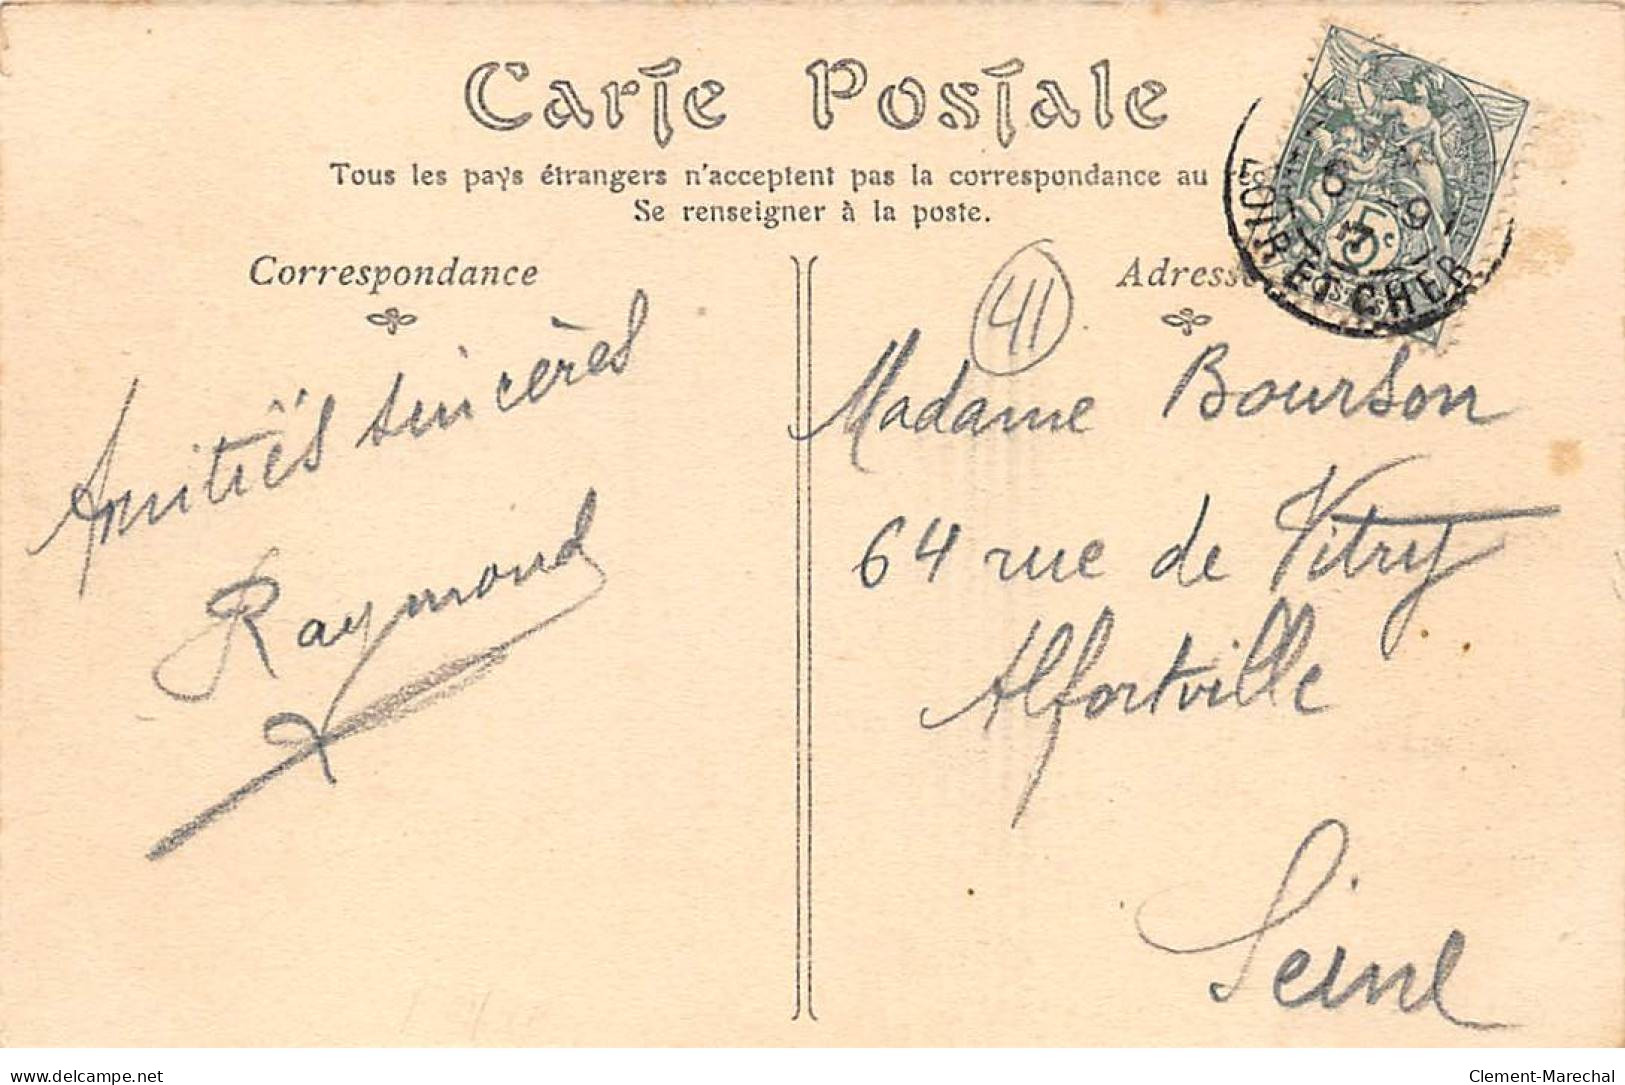 Carte Postale
Tous les pays étrangers n'acceptent pas la correspondance au
Se renseigner à la poste.
Correspondance
Adresse
LOIR ET CHER
5c
41
Amitiés sincères
Raymond
Madame Bourson
64 rue de Vitry
Alfortville
Seine
delcampe.net
Clement-Marechal